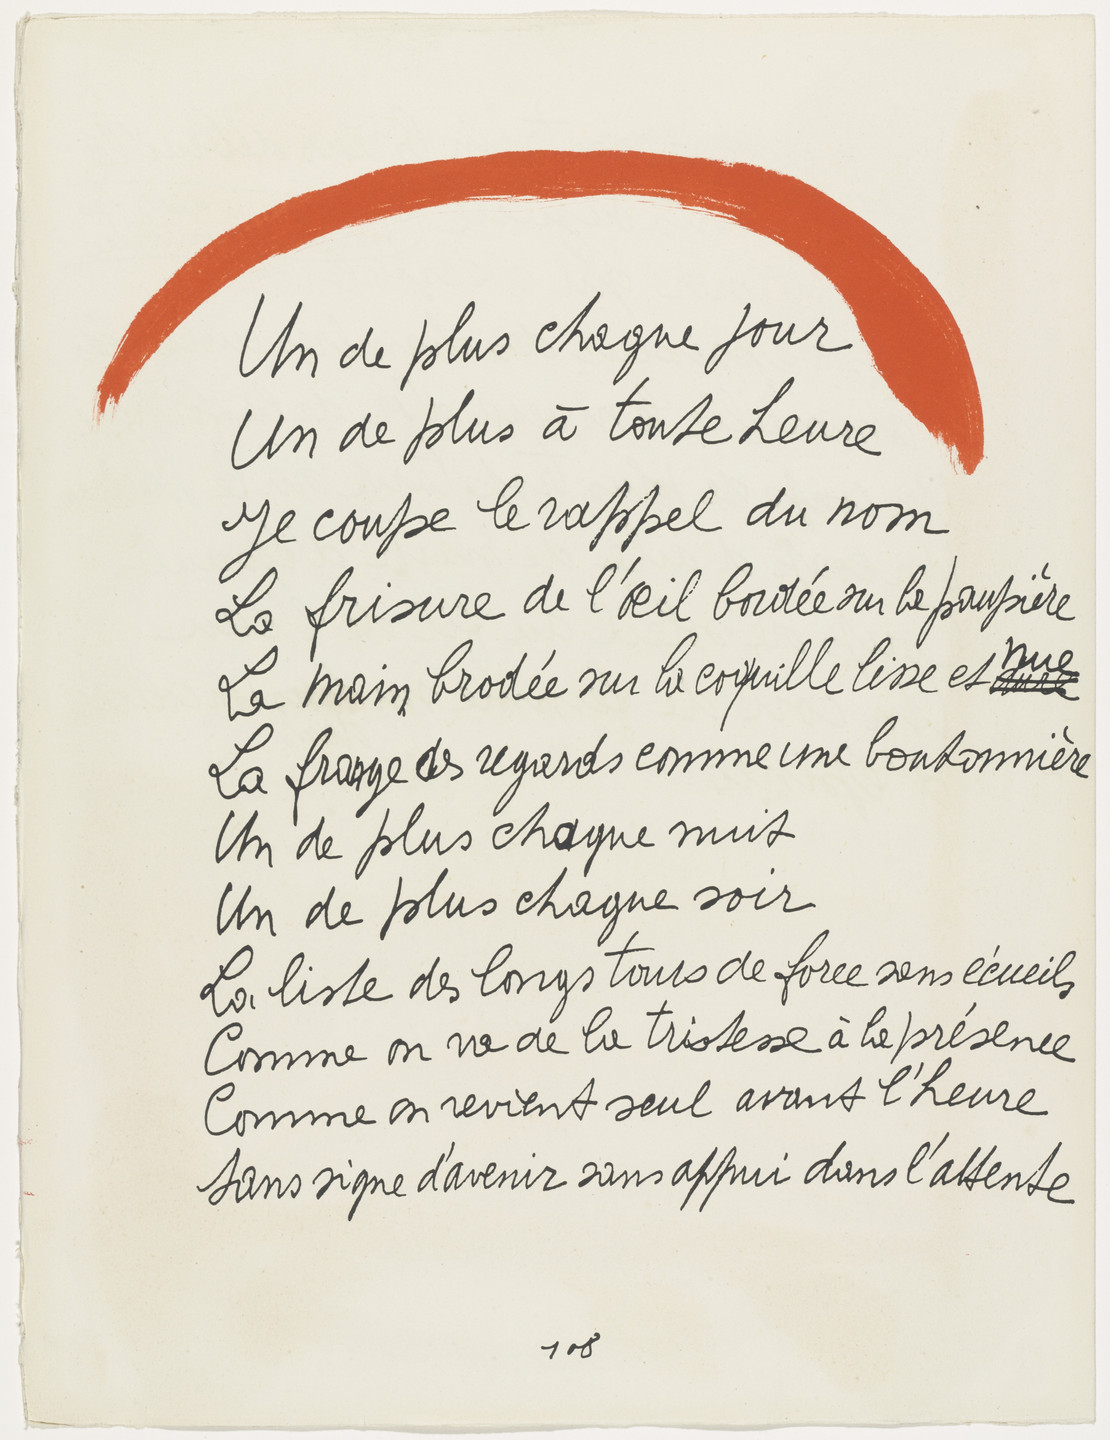 Un de plus chaque jour
Un de plus à toute heure
Je coupe le rappel du nom
La frisure de l'œil bordée sur la paupière
La main brodée sur la coquille lisse et nue
La frange des regards comme une boutonnière
Un de plus chaque nuit
Un de plus chaque soir
La liste des longs tours de force sans écueils
Comme on va de la tristesse à la présence
Comme on revient seul avant l'heure
sans signe d'avenir sans appui dans l'attente
108